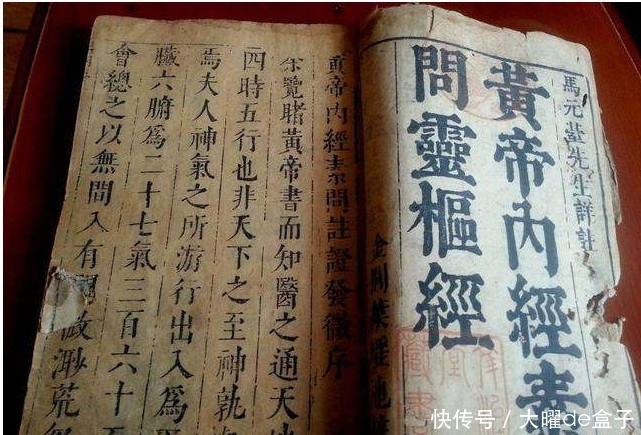 馬元臺先生詳註
黃帝內經素
問靈樞經
金閶葉瑤池
黃帝內經素問註證發微序
余覽睹黃帝書而知醫之通天地
四時五行也非天下之至神孰
焉夫人神氣之所游行出入爲
臟六腑爲二十七氣三百六十五
會總之以無間入有間微渺荒
藏書
快传号 / 大曜de盒子